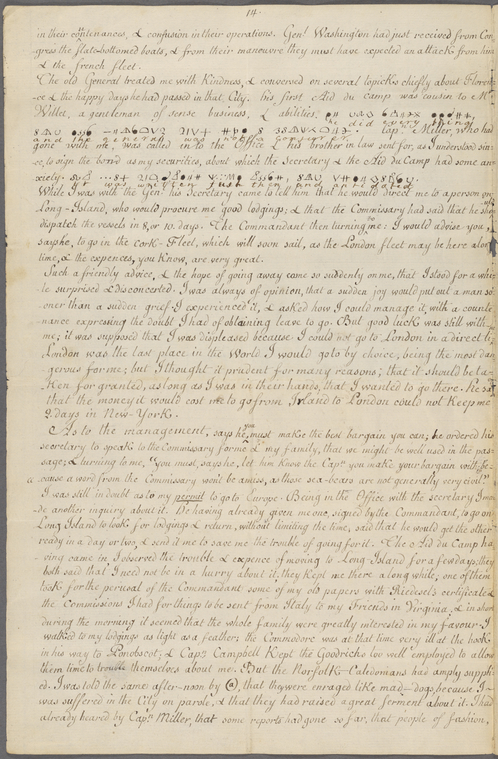 14.
in their contenances, & confusion in their operations. Genl Washington had just received from Con
gress the flate-bottomed boats, & from their maneuvre they must have expected an attack from him
& the french fleet.
The old General treated me with Kindness, & conversed on several topicks chiefly about Floren
-ce & the happy days he had passed in that City. his first Aid du Camp was cousen to Mr
Willet, a gentleman of sense business, & abilities. he did every thing
and the general was a Capt. Miller, who had
gone with me, was called in to the Office & his brother in law sent for, as I understood sin-
ce, to sign the bond as my securities, about which the Secretary & the Aid du Camp had some an-
xiety. was written just then and
While I was with the Genl his Secretary came to tell him that he would direct me to a person on
Long-Island, who would procure me good lodgings; & that the Commissary had said that he
dispatch the vessels in 8, or 10. days. The Commandant then turning to me: I would advise you,
says he, to go in the Cork-Fleet, which will soon sail, as the London fleet may be here a long
time, & the expences, you know, are very great.
Such a friendly advice, & the hope of going away came so suddenly on me, that I stood for a whi-
le surprised & disconcerted. I was always of opinion, that a sudden joy would put out a man so-
oner than a sudden grief. I experienced it, & asked how I could manage it, with a counte-
nance expressing the doubt I had of obtaining leave to go. But good luck was still with
me; it was supposed that I was displeased because I could not go to London in a direct li
London was the last place in the World I would go to by choice, being the most dan-
gerous for me; but I thought it prudent for many reasons, that it should be ta-
Ken for granted, as long as I was in their hands, that I wanted to go there. he sa
that the money it would cost me to go from Irland to London could not Keep me
2. days in New-York.
As to the management, says he, you must make the best bargain you can; he ordered his
secretary to speak to the Commissary for me & my family, that we might be well used in the pas-
sage; & turning to me, You must, says he, let him know the Capn you make your bargain with, be-
cause a word from the Commissary won't be amiss, as those sea-bears are not generally very civil.
I was still in doubt as to my permit to go to Europe. Being in the Office with the secretary I ma-
de another inquiry about it. He having already given me one, segned by the Commandant, to go on
Long Island to look for lodgings & return, without limiting the time, said that he would get the other
ready in a day or two, & send it me to save me the trouble of going for it. The Aid du Camp ha-
ving came in I observed the trouble & expence of moving to Long-Island for a few days, they
both said that I need not be in a hurry about it. they kept me there a long while; one of them
took for the perusal of the Commandant some of my old papers with Riedesel's certificate &
the Commissions I had for things to be sent from Italy to my Friends in Virginia; & in short
during the morning it seemed that the whole family were greatly interested in my favour. I
walked to my lodgings as light as a feather; the Commodore was at that time very ill at the hook
in his way to Ponobscot; & Capn Campbell Kept the Goodrichs too well employed to allow
them time to trouble themselves about me. But the Norfolk-Caledonians had amply suppli-
ed. I was told the same after-noon by @, that they were enraged like mad-dogs, because I
was suffered in the City on parole, & that they had raised a great ferment about it. I had
already heared by Capn Miller, that some reports had gone so far, that people of fashion,